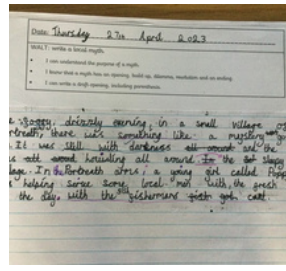 Date: Thursday 27th April 2023
WALT: write a local myth.
• I can understand the purpose of a myth.
• I know that a myth has an opening, build up, dilemma, resolution and an ending.
• I can write a draft opening, including parenthesis.
e foggy, drizzly evening, in a small village of
ortreath, there was something like a mystery
. It was still with darkness all around and the
s all around howling all around. In the sleepy
lage. In the Portreath arms, a young girl called Popp
s helping serve some local men with the fresh
the day, with the fishermans cart